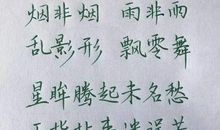 烟非烟 雨非雨
乱影形 飘零舞
星眸腾起未名愁